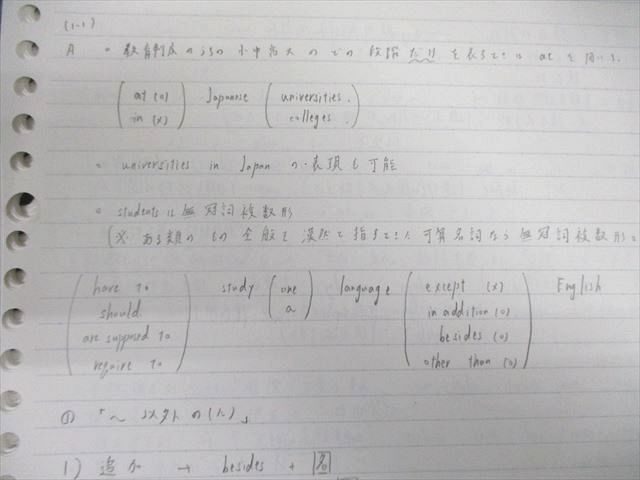 (1-1)
A ○ 教育制度のうちの小中高大のどの段階だけを表すときは at を用いる。
at (○) Japanese universities.
in (×) colleges.
○ universities in Japan の表現も可能
○ students は無冠詞複数形
(※ ある類のもの全般を漠然と指すときは可算名詞なら無冠詞複数形。
have to study one language except (×) English
should a in addition (○)
are supposed to besides (○)
require to other than (○)
① 「~以外の(に)」
1) 追加 → besides + 名